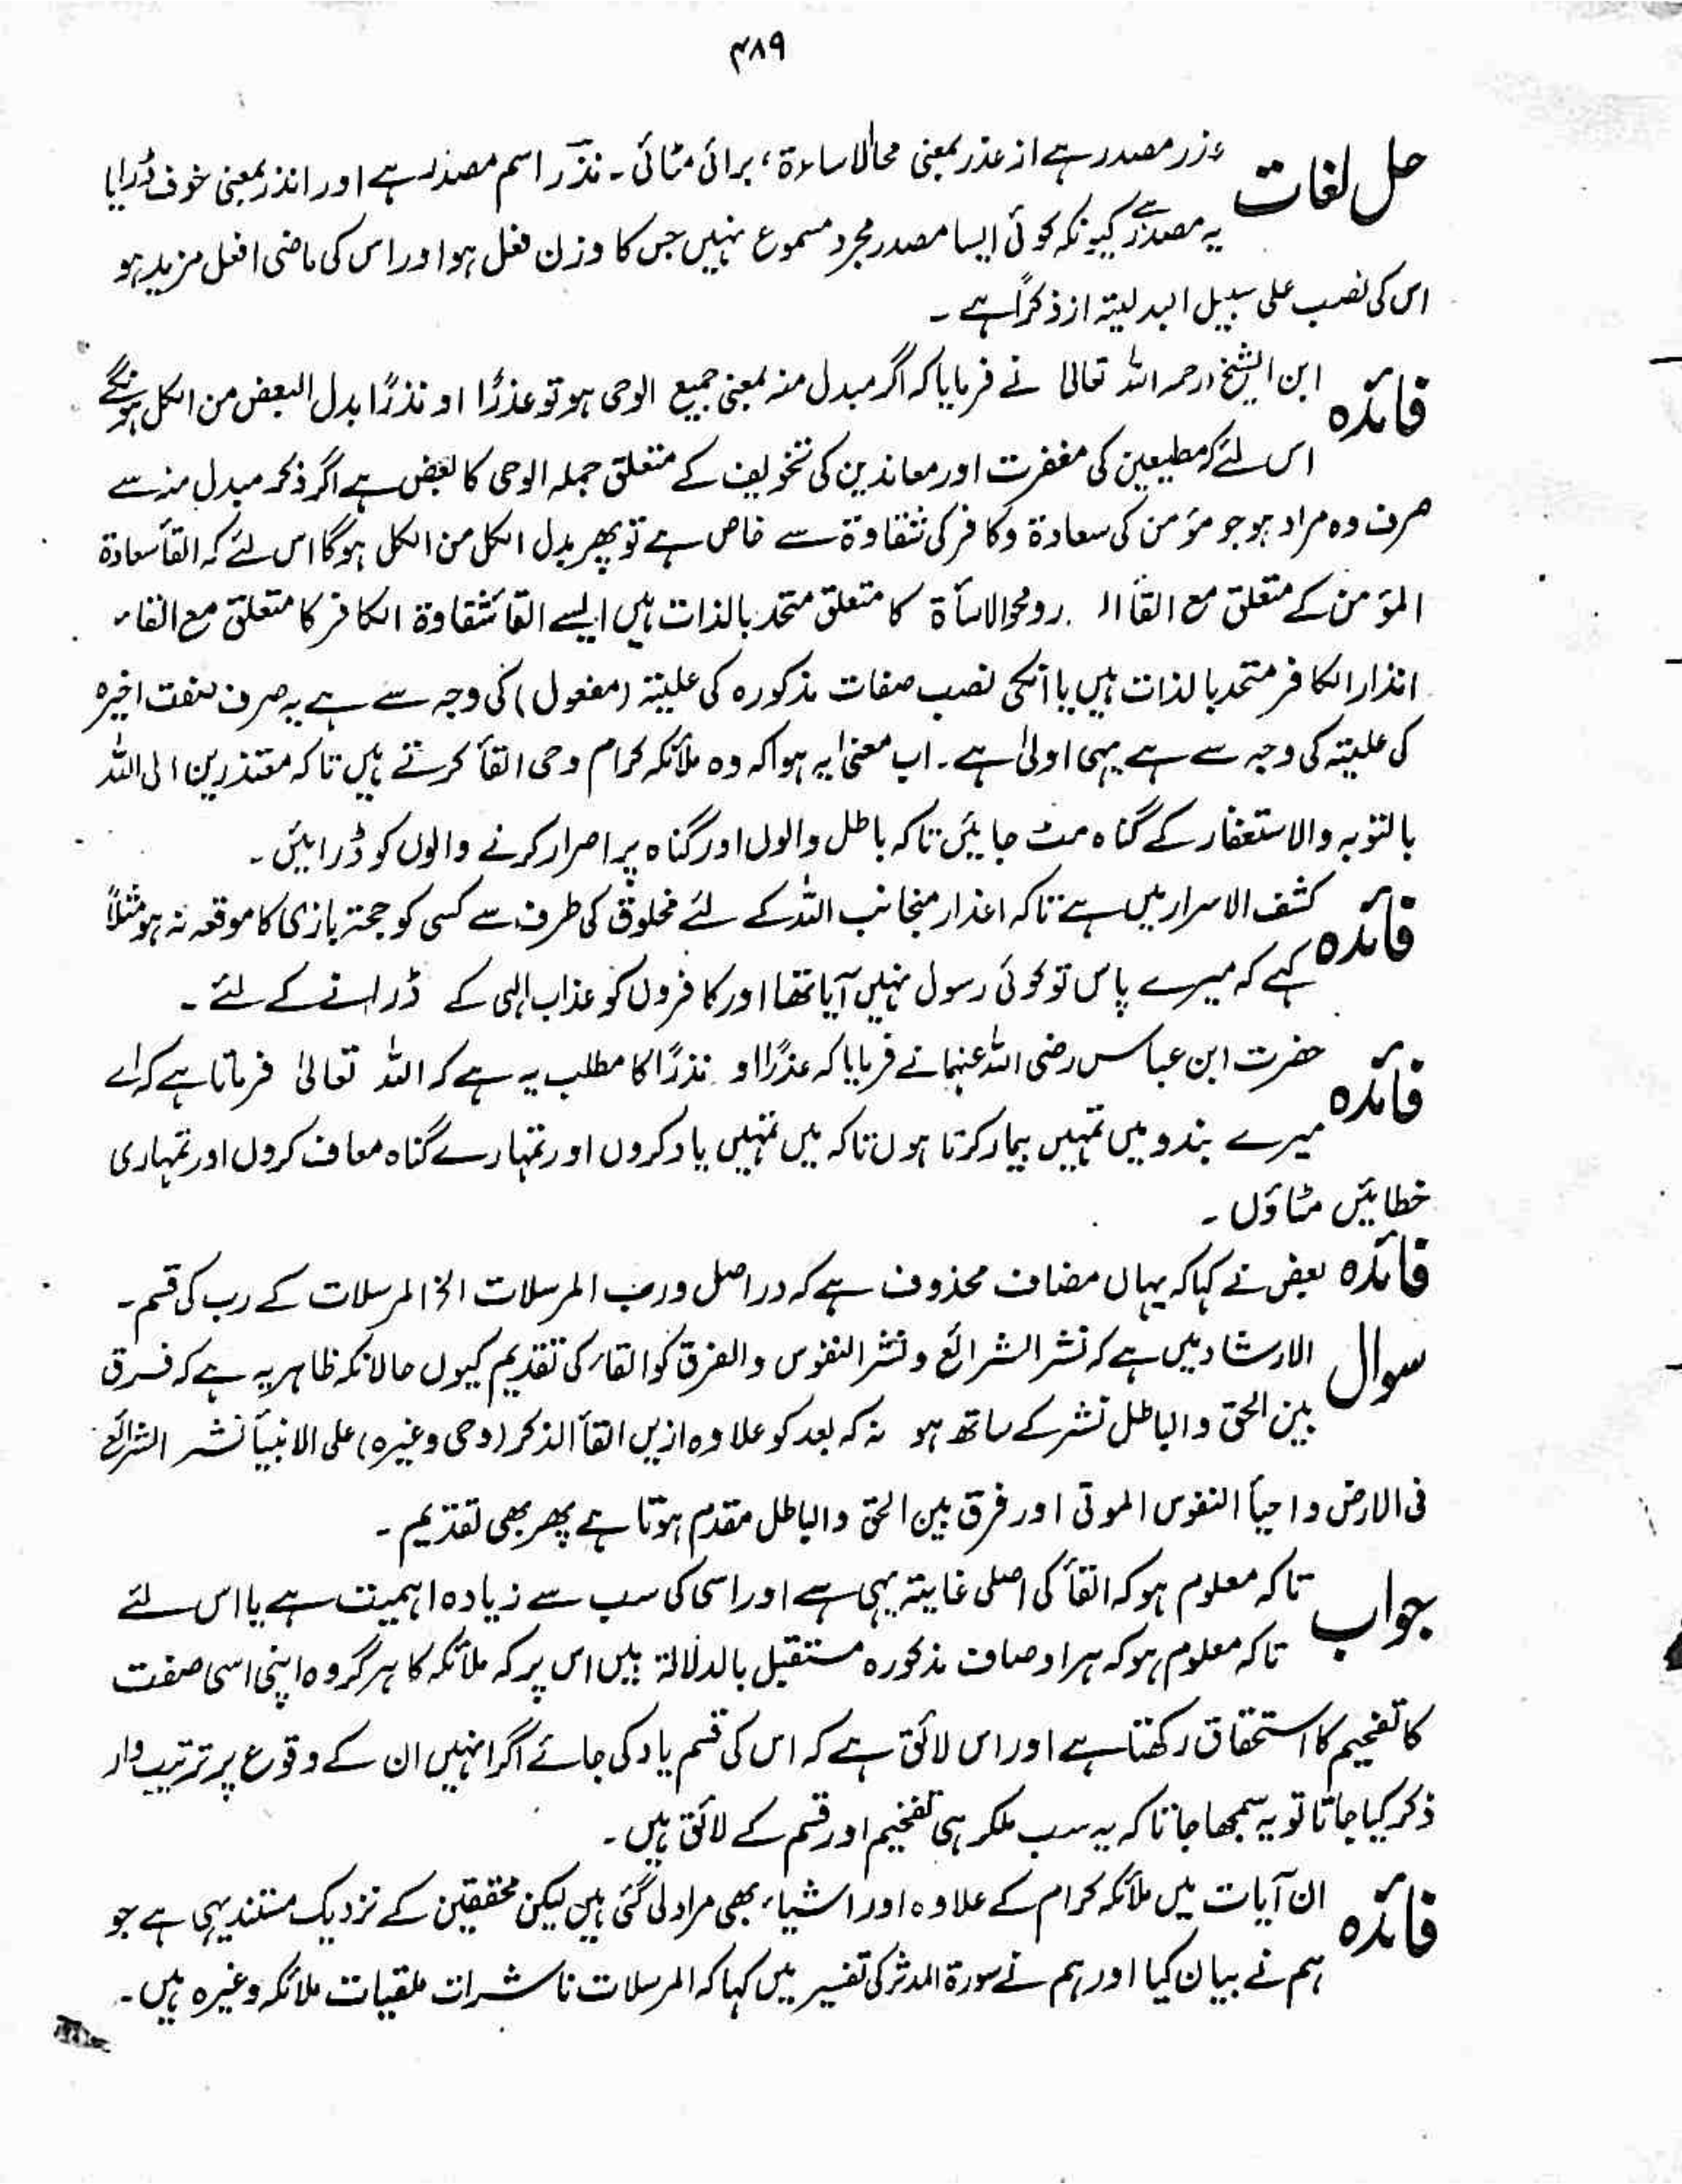 ۴۸۹
حل لغات عذر مصدر ہے از عذر بمعنی محا الاساءۃ، برائی مٹائی۔ نذر اسم مصدر ہے اور انذر بمعنی خوف ڈرایا
یہ مصدر ہے کیونکہ کوئی ایسا مصدر مجرد مسموع نہیں جس کا وزن فعل ہو اور اس کی ماضی افعل مزید ہو
اس کی نصب علی سبیل البدلیتہ از ذکراً ہے۔
فائدہ ابن الشیخ رحمہ اللہ تعالیٰ نے فرمایا کہ اگر مبدل منہ بمعنی جمیع الوحی ہو تو عذرًا او نذرًا بدل البعض من الکل ہونگے
اس لئے کہ مطیعین کی مغفرت اور معاندین کی تخویف کے متعلق جملہ الوحی کا بعض ہے اگر ذکر مبدل منہ سے
صرف وہ مراد ہو جو مؤمن کی سعادۃ و کافر کی شقاوۃ سے خاص ہے تو پھر بدل الکل من الکل ہوگا اس لئے کہ القأ سعادۃ
المؤمن کے متعلق مع القأ و محو الاسأۃ کا متعلق متحد بالذات ہیں ایسے القأ شقاوۃ الکافر کا متعلق مع القاء
انذار الکافر متحد بالذات ہیں یا انکی نصب صفات مذکورہ کی علیتہ (مفعول) کی وجہ سے ہے یہ صرف صفت اخیرہ
کی علیتہ کی وجہ سے ہے یہی اولیٰ ہے۔ اب معنیٰ یہ ہوا کہ وہ ملائکہ کرام وحی القأ کرتے ہیں تاکہ معتذرین الی اللہ
بالتوبہ والاستغفار کے گناہ مٹ جائیں تاکہ باطل والوں اور گناہ پر اصرار کرنے والوں کو ڈرائیں۔
فائدہ کشف الاسرار میں ہے تاکہ اعذار منجانب اللہ کے لئے مخلوق کی طرف سے کسی کو حجتہ بازی کا موقعہ نہ ہو مثلاً
کہے کہ میرے پاس تو کوئی رسول نہیں آیا تھا اور کافروں کو عذاب الٰہی کے ڈرانے کے لئے۔
فائدہ حضرت ابن عباس رضی اللہ عنہما نے فرمایا کہ عذرًا او نذرًا کا مطلب یہ ہے کہ اللہ تعالیٰ فرماتا ہے کہ اے
میرے بندو میں تمہیں بیمار کرتا ہوں تاکہ میں تمہیں یاد کروں اور تمہارے گناہ معاف کروں اور تمہاری
خطائیں مٹاؤں۔
فائدہ بعض نے کہا کہ یہاں مضاف محذوف ہے کہ دراصل ورب المرسلات الخ المرسلات کے رب کی قسم۔
سوال الارشاد میں ہے کہ نشر الشرائع و نشر النفوس والفرق کو القاء کی تقدیم کیوں حالانکہ ظاہر یہ ہے کہ فرق
بین الحق والباطل نشر کے ساتھ ہو نہ کہ بعد کو علاوہ ازیں القأ الذکر (وحی وغیرہ) علی الانبیأ نشر الشرائع
فی الارض و احیأ النفوس الموتی اور فرق بین الحق والباطل مقدم ہوتا ہے پھر بھی تقدیم۔
جواب تاکہ معلوم ہو کہ القأ کی اصلی غایتہ یہی ہے اور اسی کی سب سے زیادہ اہمیت ہے یا اس لئے
تاکہ معلوم ہو کہ ہر اوصاف مذکورہ مستقبل بالدلالۃ ہیں اس پر کہ ملائکہ کا ہر گروہ اپنی اسی صفت
کا تفخیم کا استحقاق رکھتا ہے اور اس لائق ہے کہ اس کی قسم یاد کی جائے اگر انہیں ان کے وقوع پر ترتیب وار
ذکر کیا جاتا تو یہ سمجھا جاتا کہ یہ سب ملکر ہی تفخیم اور قسم کے لائق ہیں۔
فائدہ ان آیات میں ملائکہ کرام کے علاوہ اور اشیاء بھی مراد لی گئی ہیں لیکن محققین کے نزدیک مستند یہی ہے جو
ہم نے بیان کیا اور ہم نے سورۃ المدثر کی تفسیر میں کہا کہ المرسلات ناشرات ملقیات ملائکہ وغیرہ ہیں۔